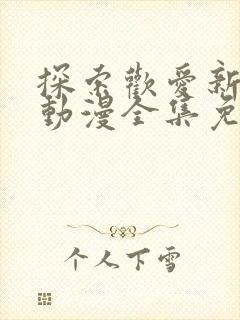 探索歡愛新
動漫全集免
个人下雪